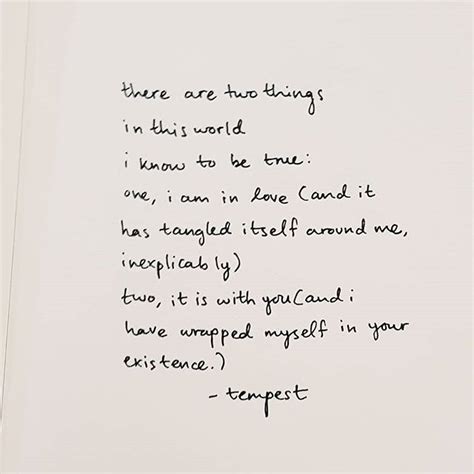 there are two things
in this world
i know to be true:
one, i am in love (and it
has tangled itself around me,
inexplicably)
two, it is with you (and i
have wrapped myself in your
existence.)
- tempest